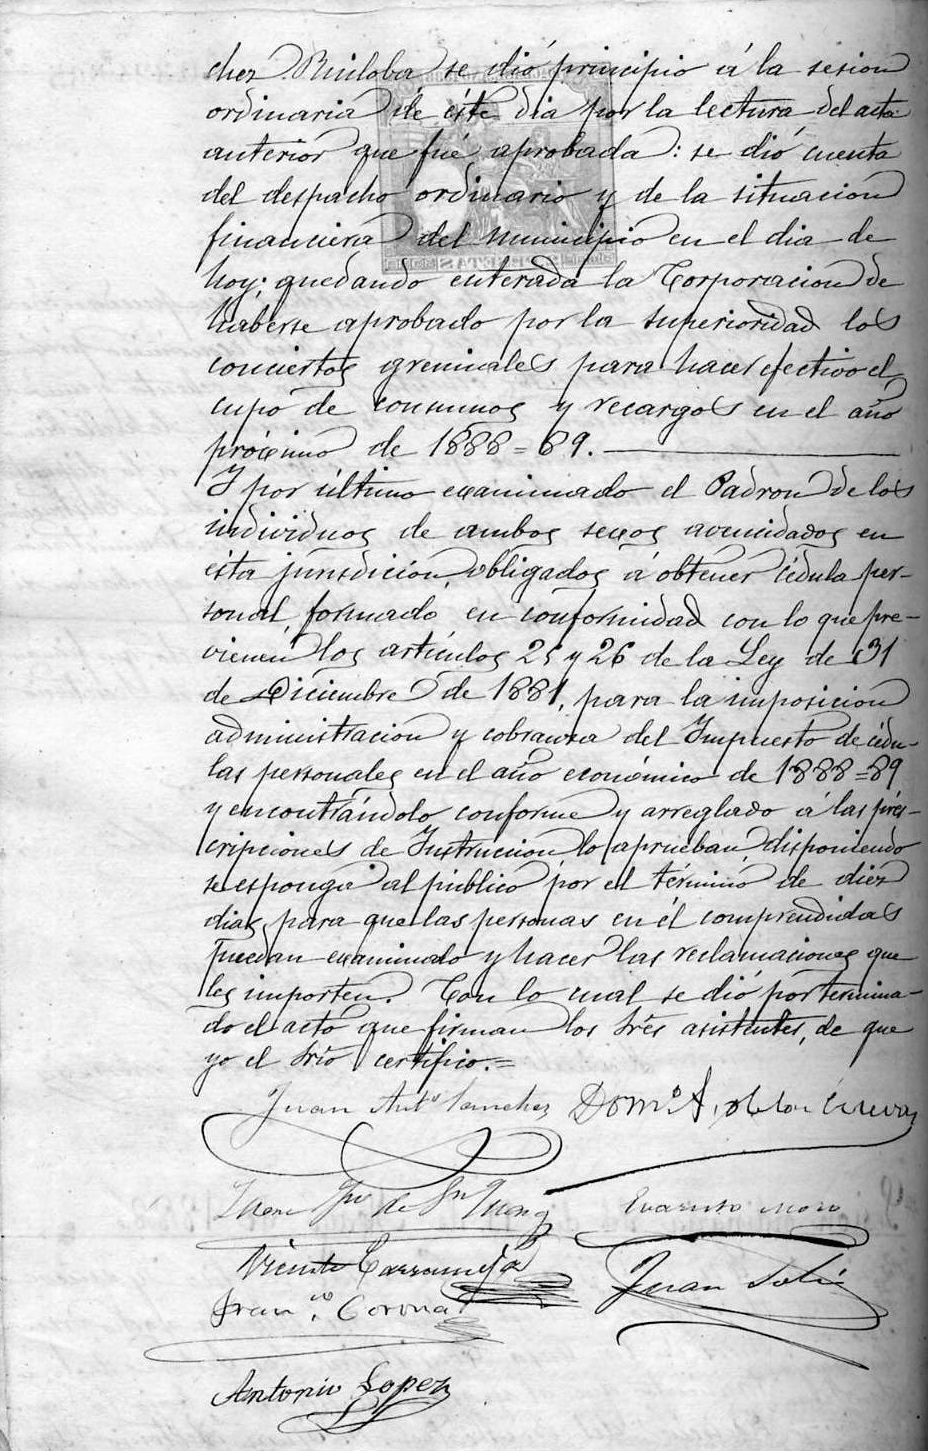 chez Ruiloba se dió principio á la sesion
ordinaria de éste dia por la lectura del acta
anterior que fué aprobada: se dió cuenta
del despacho ordinario y de la situacion
financiera del Municipio en el dia de
hoy; quedando enterada la Corporacion de
haberse aprobado por la superioridad los
conciertos gremiales para hacer efectivo el
cupo de consumos y recargos en el año
próximo de 1888=89.
Y por último examinado el Padron de los
individuos de ambos sexos avecindados en
ésta jurisdicion, obligados á obtener cédula per-
sonal, formado en conformidad con lo que pre-
vienen los artículos 25 y 26 de la Ley de 31
de Diciembre de 1881, para la imposicion
administracion y cobranza del Impuesto de cédu-
las personales en el año económico de 1888=89
y encontrándolo conforme y arreglado á las pres-
cripciones de Instruccion lo aprueban, disponiendo
se esponga al público por el término de diez
dias para que las personas en él comprendidas
puedan examinarlo y hacer las reclamaciones que
les importen. Con lo cual se dió por termina-
do el acto que firman los Sres asistentes, de que
yo el Srio certifico.=
Juan Anto Sanchez Domo A. de las Cuevas
Juan de Sn Juan Evaristo Moro
Vicente
Juan Solis
Franco. Corona
Antonio Lopez